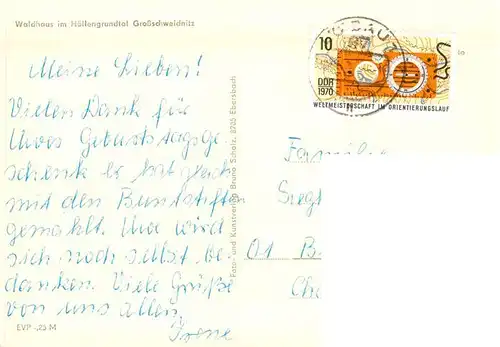 Waldhaus im Höllengrundtal Großschweidnitz
Meine Lieben!
Vielen Dank für
Uwes Geburtstagsge
schenk. Er hat gleich
mit den Buntstiften
gemahlt. Uwe wird
sich noch selbst be
danken. Viele Grüße
von uns allen
Irene
EVP -,25 M
"Foto- und Kunstverlag Bruno Scholz, 8705 Ebersbach
10
DDR
1970
WELTMEISTERSCHAFT IM ORIENTIERUNGSLAUF
Famili
Siegf
01 B
Ch